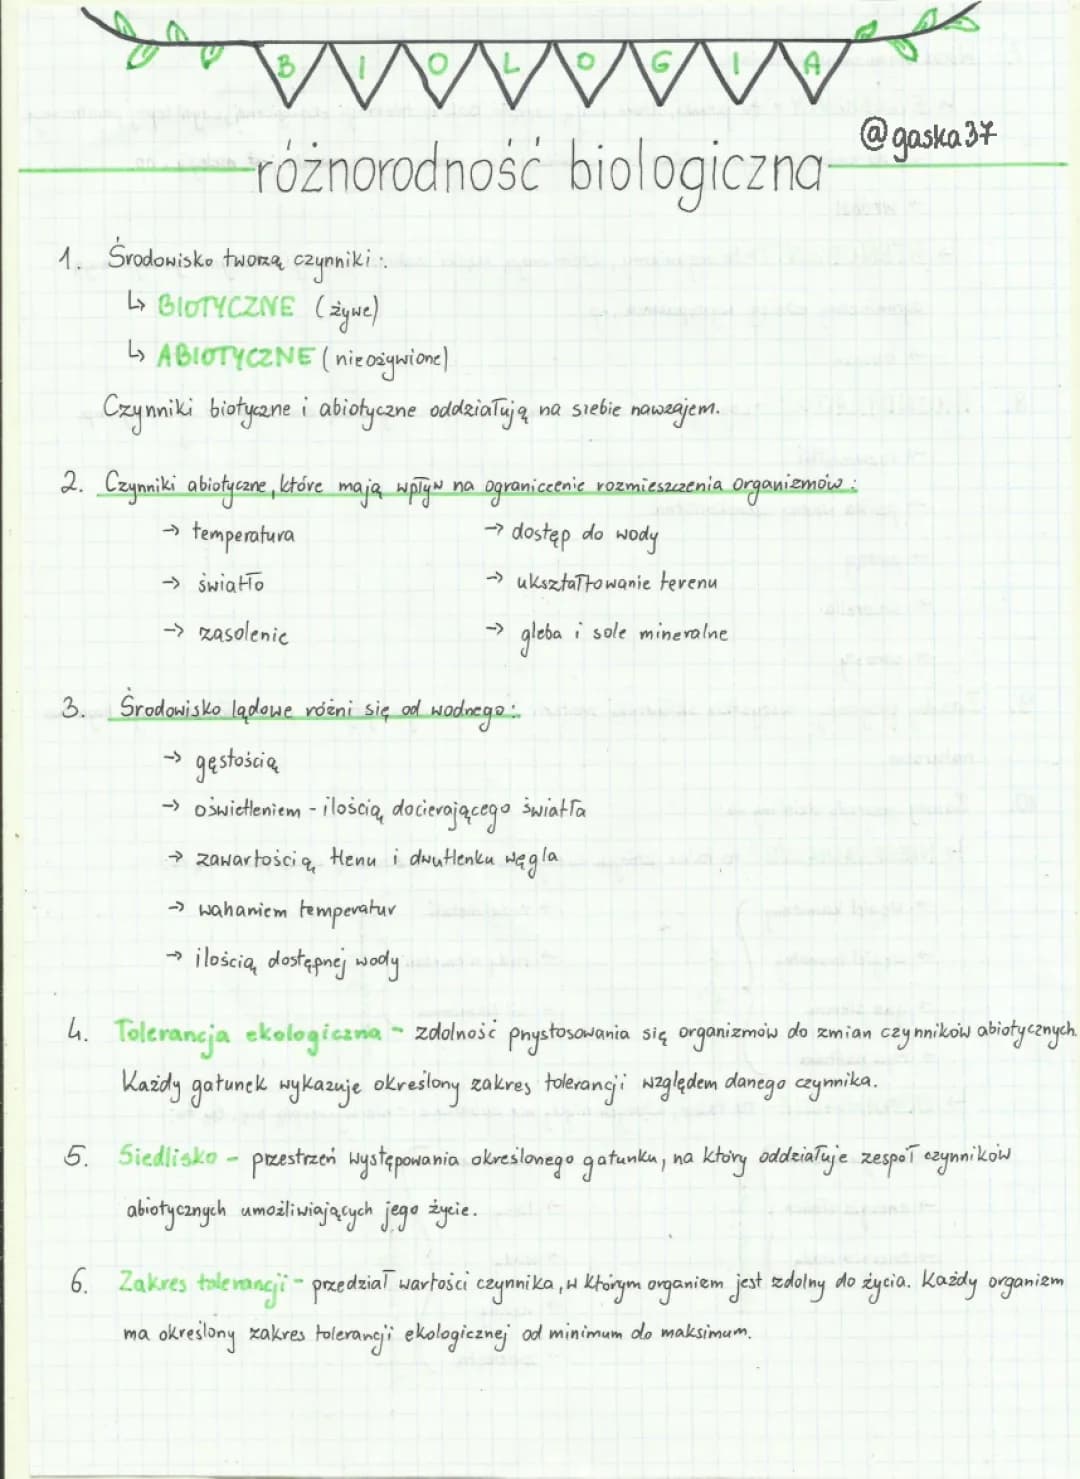 BIOLOGIA
@gaska37
różnorodność biologiczna
1. Środowisko tworzą czynniki:
↳ BIOTYCZNE (żywe)
↳ ABIOTYCZNE (nieożywione)
Czynniki biotyczne i abiotyczne oddziałują na siebie nawzajem.
2. Czynniki abiotyczne, które mają wpływ na ograniczenie rozmieszczenia organizmów:
→ temperatura → dostęp do wody
→ światło → ukształtowanie terenu
→ zasolenie → gleba i sole mineralne
3. Środowisko lądowe różni się od wodnego:
→ gęstością
→ oświetleniem - ilością docierającego światła
→ zawartością tlenu i dwutlenku węgla
→ wahaniem temperatur
→ ilością dostępnej wody
4. Tolerancja ekologiczna - zdolność przystosowania się organizmów do zmian czynników abiotycznych.
Każdy gatunek wykazuje określony zakres tolerancji względem danego czynnika.
5. Siedlisko - przestrzeń występowania określonego gatunku, na który oddziałuje zespół czynników
abiotycznych umożliwiających jego życie.
6. Zakres tolerancji - przedział wartości czynnika, w którym organizm jest zdolny do życia. Każdy organizm
ma określony zakres tolerancji ekologicznej od minimum do maksimum.